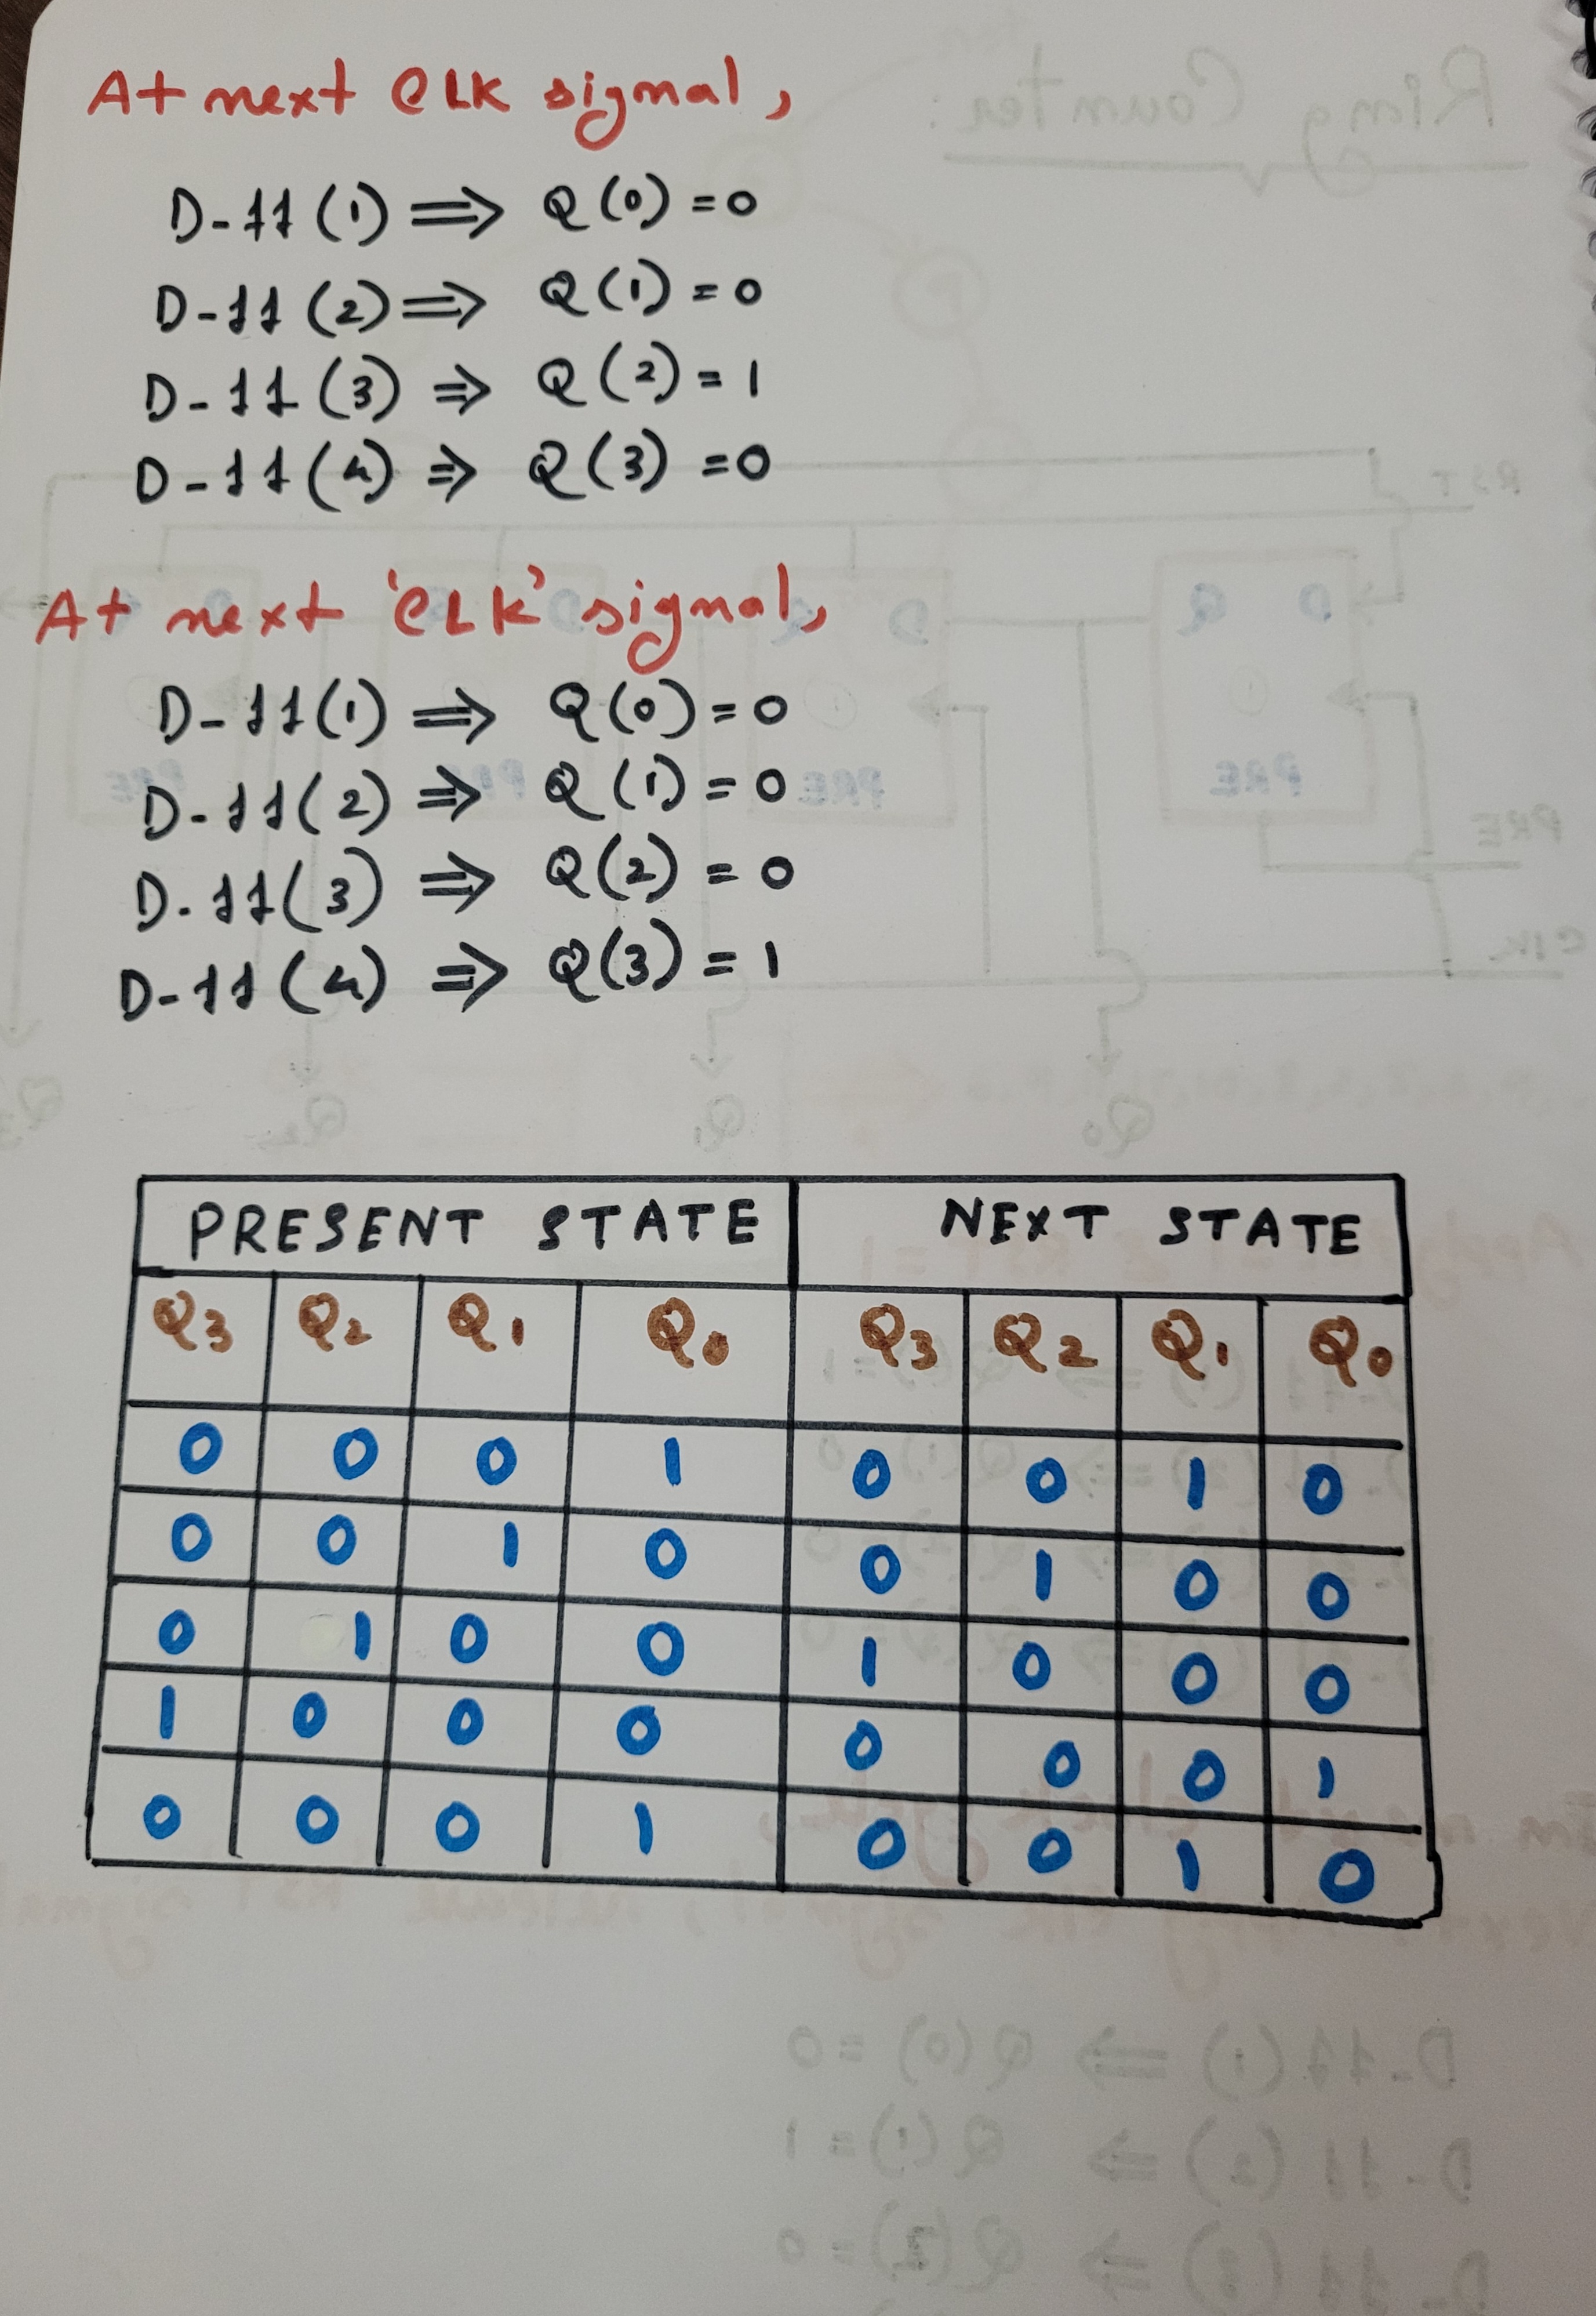 At next CLK signal,
D-ff (1) ⇒ Q(0) = 0
D-ff (2) ⇒ Q(1) = 0
D-ff (3) ⇒ Q(2) = 1
D-ff (4) ⇒ Q(3) = 0
At next 'CLK' signal,
D-ff (1) ⇒ Q(0) = 0
D-ff (2) ⇒ Q(1) = 0
D-ff (3) ⇒ Q(2) = 0
D-ff (4) ⇒ Q(3) = 1
PRESENT STATE NEXT STATE
Q3 Q2 Q1 Q0 Q3 Q2 Q1 Q0
0 0 0 1 0 0 1 0
0 0 1 0 0 1 0 0
0 1 0 0 1 0 0 0
1 0 0 0 0 0 0 1
0 0 0 1 0 0 1 0